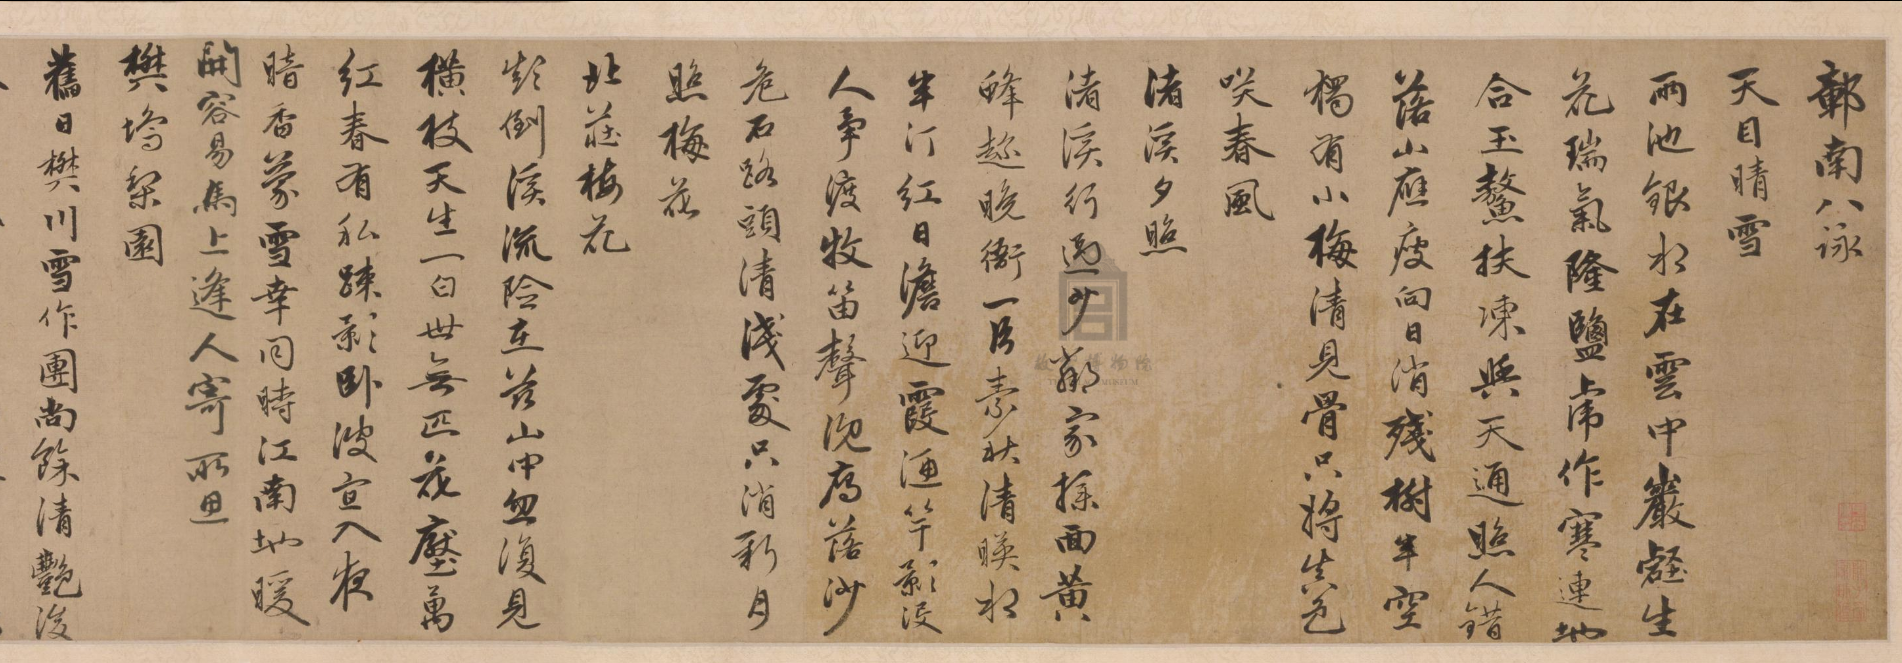 鄣南八詠
天目晴雪
兩池銀水在雲中巖壑生
花瑞氣隆鹽虎作寒連地
合玉鰲扶凍與天通照人錯
落山應瘦向日消殘樹半空
獨有小梅清見骨只將生色
笑春風
渚溪夕照
渚溪行過少鄰家採面黃
蜂趂晚衙一片素秋清暎水
半汀紅日澹迎霞酒竿影沒
人爭渡牧笛聲沉鴈落沙
危石路頭清淺處只消新月
照梅花
北莊梅花
影倒溪流險在茲山中忽復見
橫枝天生一白世無匹花壓萬
紅春有私踈影臥波宜入夜
暗香蒙雪幸同時江南地暖
開容易馬上逢人寄所思
樊塢梨園
舊日樊川雪作團尚餘清艷後